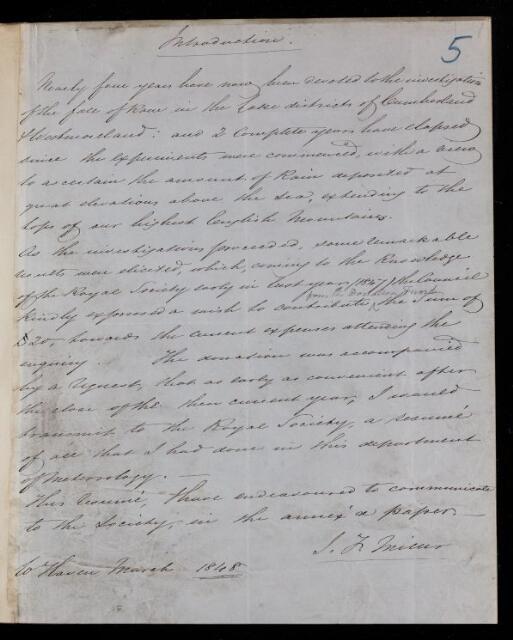 Introduction.
5
Nearly four years have now been devoted to the investigation
of the fall of Rain in the Lake districts of Cumberland
& Westmoreland: and 2 complete years have elapsed
since the experiments were commenced, with a view
to ascertain the amount of Rain deposited at
great elevations above the Sea, extending to the
tops of our highest English Mountains.
As the investigations proceeded, some remarkable
results were elicited, which, coming to the knowledge
of the Royal Society early in last year (1847) the Council
from the Fund
kindly expressed a wish to contribute the Sum of
£20 towards the current expenses attending the
enquiry. The donation was accompanied
by a request, that as early as convenient after
the close of the then current year, I would
transmit to the Royal Society, a resumé
of all that I had done in this department
of Meteorology. —
This resumé I have endeavoured to communicate
to the Society, in the annex'd paper
J. F. Miller
W Haven March 1848